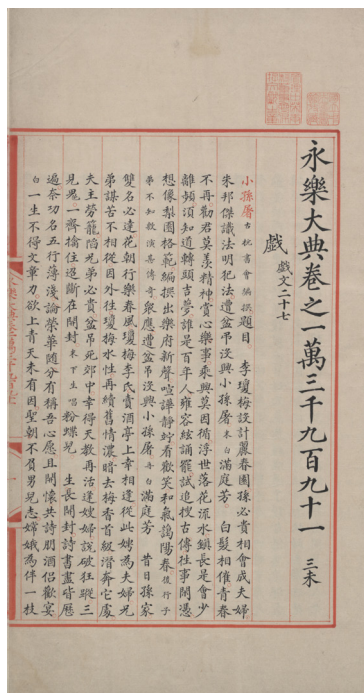 永樂大典卷之一萬三千九百九十一 三未
戲 戲文二十七
小孫屠 古杭書會編撰 題目 李瓊梅設計麗春園 孫必貴相會成夫婦
朱邦傑識法明犯法 遭盆吊沒興小孫屠 末白 滿庭芳 白髮相催青春
不再勸君莫羨精神賞心樂事乘興莫因循浮世落花流水鎮長是會少
離頻須知道轉頭吉夢誰是百年人雍容絃誦罷試追搜古傳往事閒憑
想像梨園格範編撰出樂府新聲喧譁靜竚看歡笑和氣靄陽春 後行子
弟不知敷演甚傳奇 眾應 遭盆吊沒興小孫屠 再白 滿庭芳 昔日孫家
雙名必達花朝行樂春風瓊梅李氏賣酒亭上幸相逢從此娉為夫婦兄
弟謀苦不相從因外往瓊梅水性再續舊情濃暗去梅香首級潛奔它處
夫主勞籠陷兄弟必貴盆吊死郊中幸得天教再活逢嫂婦說破狂蹤三
見鬼一齊擒住迢斷在開封 末下 生唱 粉蝶兒 生長開封詩書盡皆歷
遍奈功名五行薄淺論榮華隨分有稱吾心愿且開懷共詩朋酒侶歡宴
白 一生不得文章力欲上青天未有因聖朝不負男兒志嫦娥為伴一枝